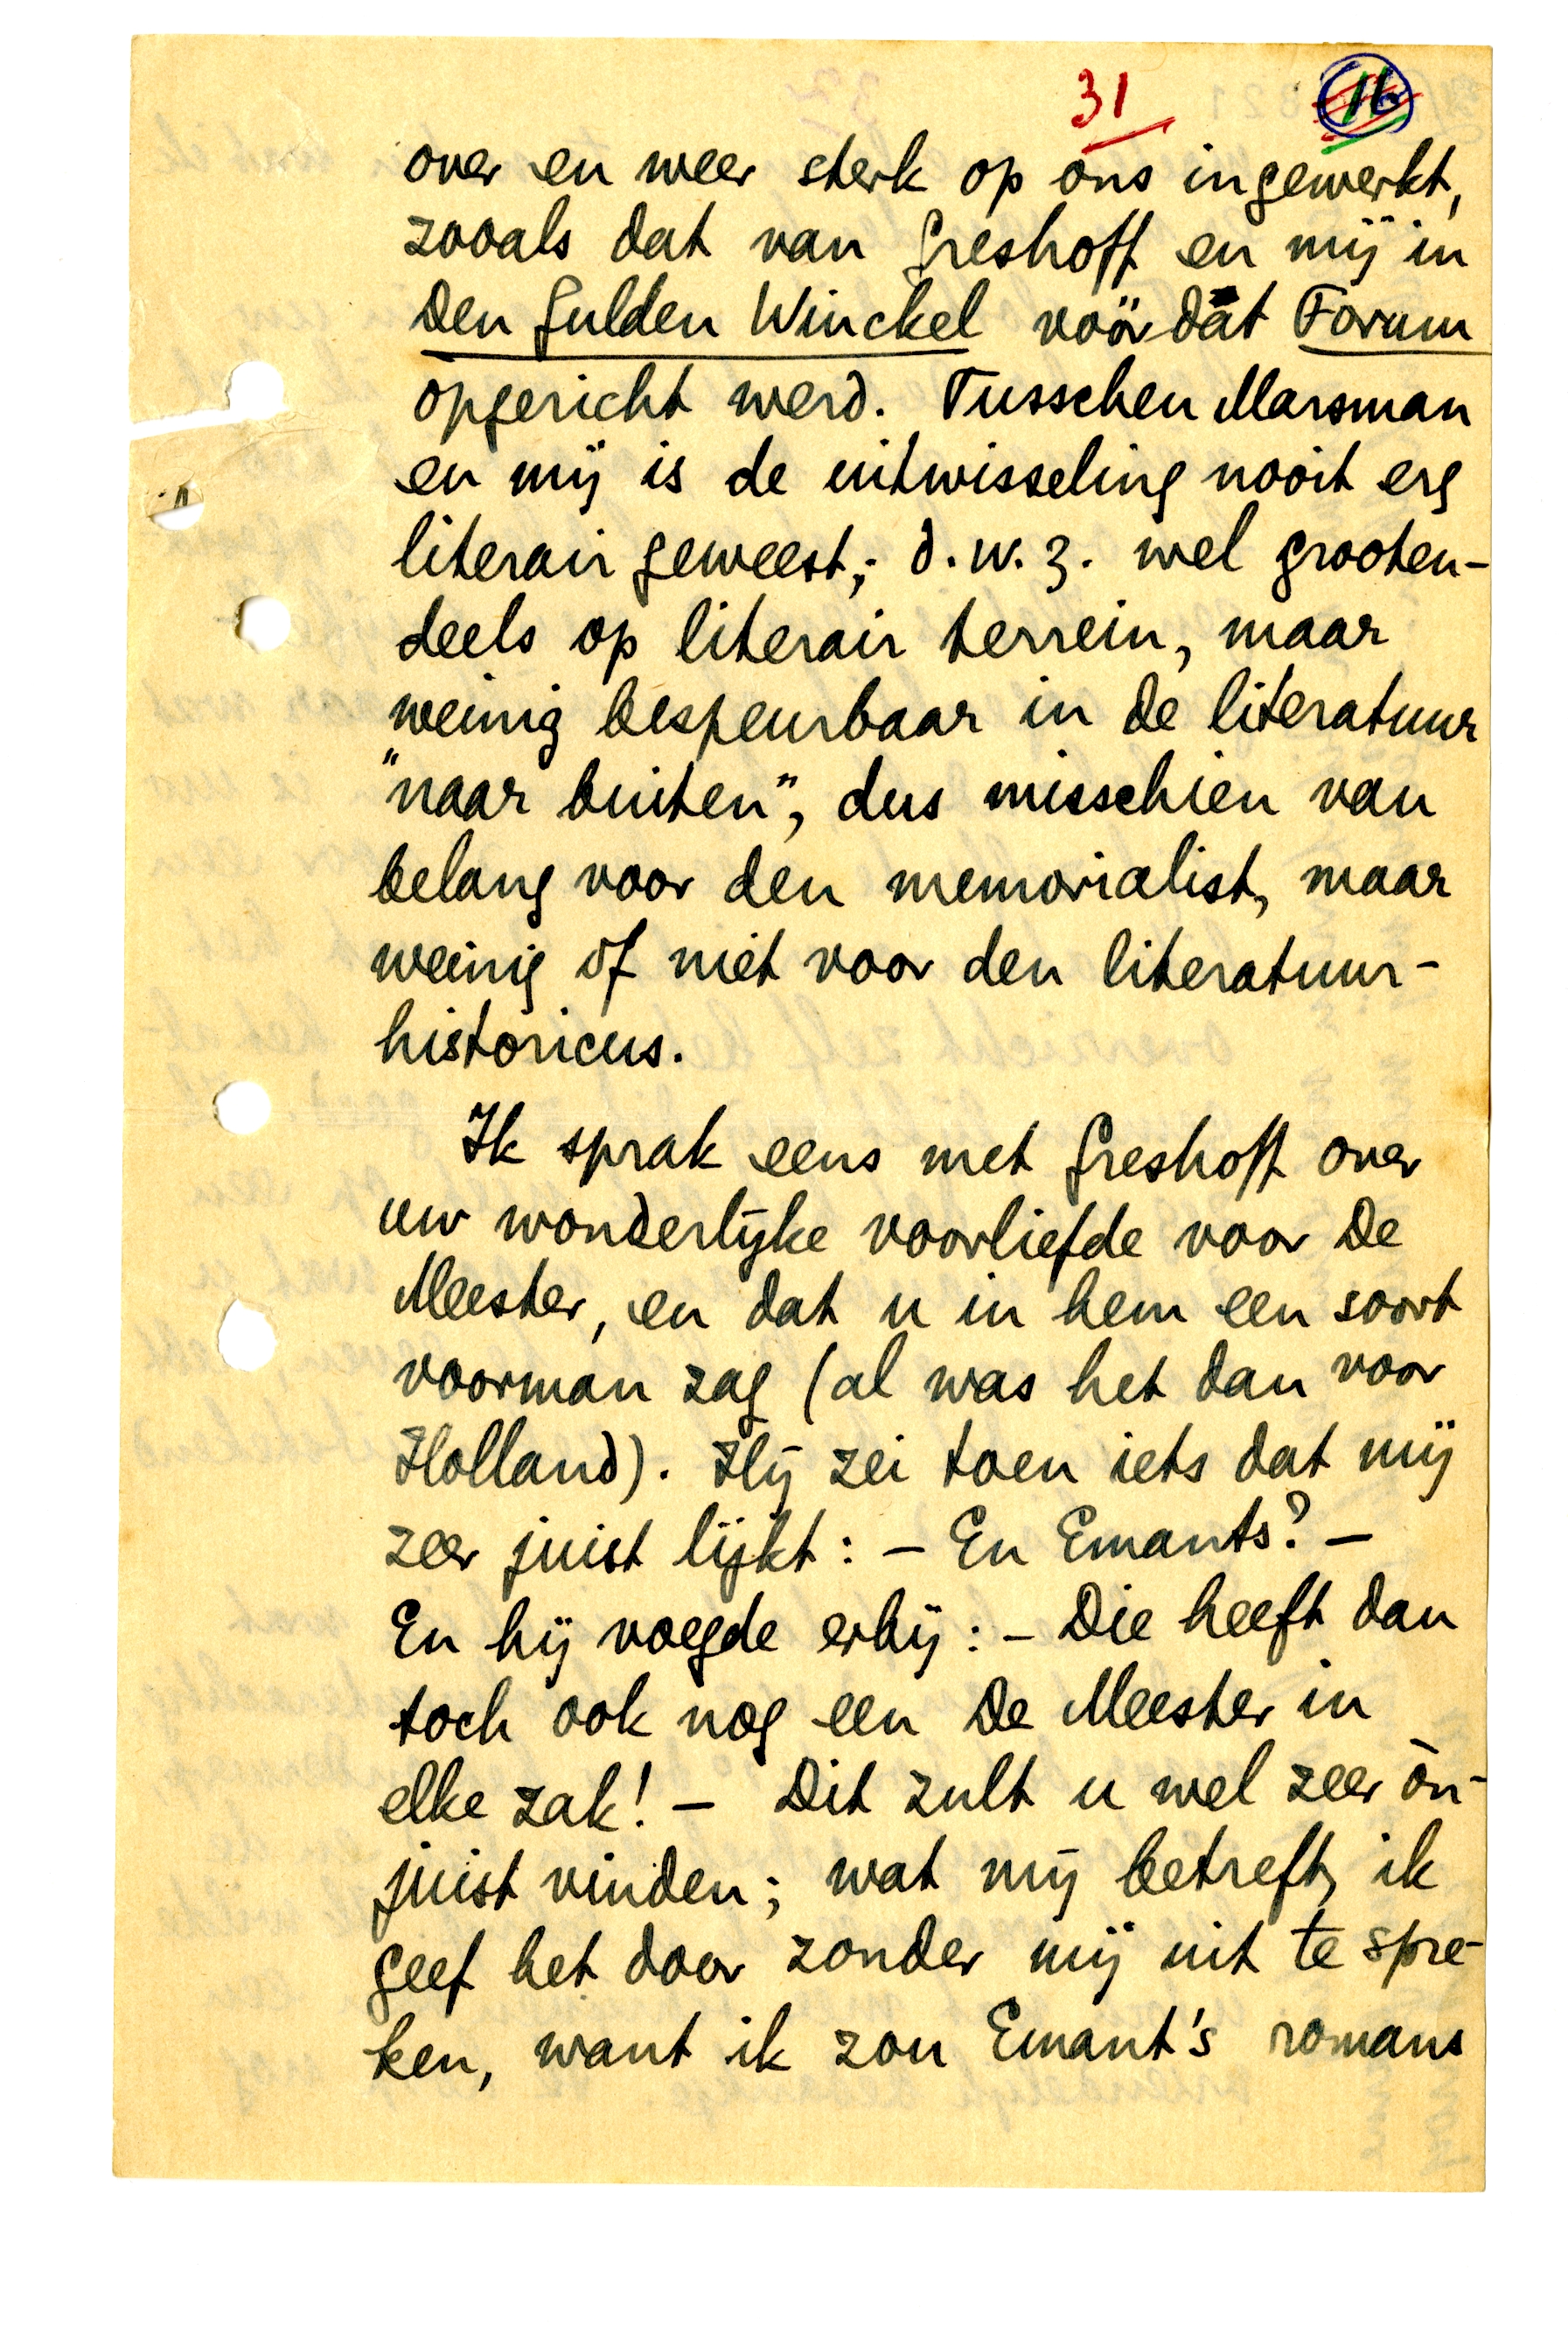 31 16
over en weer sterk op ons ingewerkt,
zooals dat van Greshoff en mij in
Den Gulden Winckel vóórdat Forum
opgericht werd. Tusschen Marsman
en mij is de uitwisseling nooit erg
literair geweest; d.w.z. wel grooten-
deels op literair terrein, maar
weinig bespeurbaar in de literatuur
"naar buiten", dus misschien van
belang voor den memorialist, maar
weinig of niet voor den literatuur-
historicus.
Ik sprak eens met Greshoff over
uw wonderlijke voorliefde voor De
Meester, en dat u in hem een soort
voorman zag (al was het dan voor
Holland). Hij zei toen iets dat mij
zeer juist lijkt: – En Emants? –
En hij voegde erbij: – Die heeft dan
toch ook nog een De Meester in
elke zak! – Dit zult u wel zeer òn-
juist vinden; wat mij betreft, ik
geef het door zonder mij uit te spre-
ken, want ik zou Emant's romans